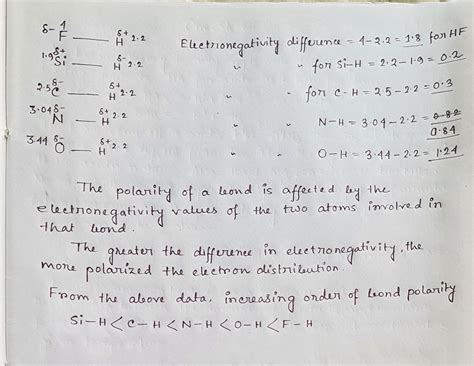 δ- 4 F —— δ+ H 2.2 Electronegativity difference = 4-2.2 = 1.8 for HF
1.9 δ+ Si —— δ- H 2.2 " " for Si-H = 2.2-1.9 = 0.2
2.5 δ- C —— δ+ H 2.2 " " for C-H = 2.5-2.2 = 0.3
3.04 δ- N —— δ+ H 2.2 " " N-H = 3.04-2.2 = 0.82
0.84
3.44 δ- O —— δ+ H 2.2 " " O-H = 3.44-2.2 = 1.24
The polarity of a bond is affected by the
electronegativity values of the two atoms involved in
that bond.
The greater the difference in electronegativity, the
more polarized the electron distribution.
From the above data, increasing order of bond polarity
Si-H < C-H < N-H < O-H < F-H